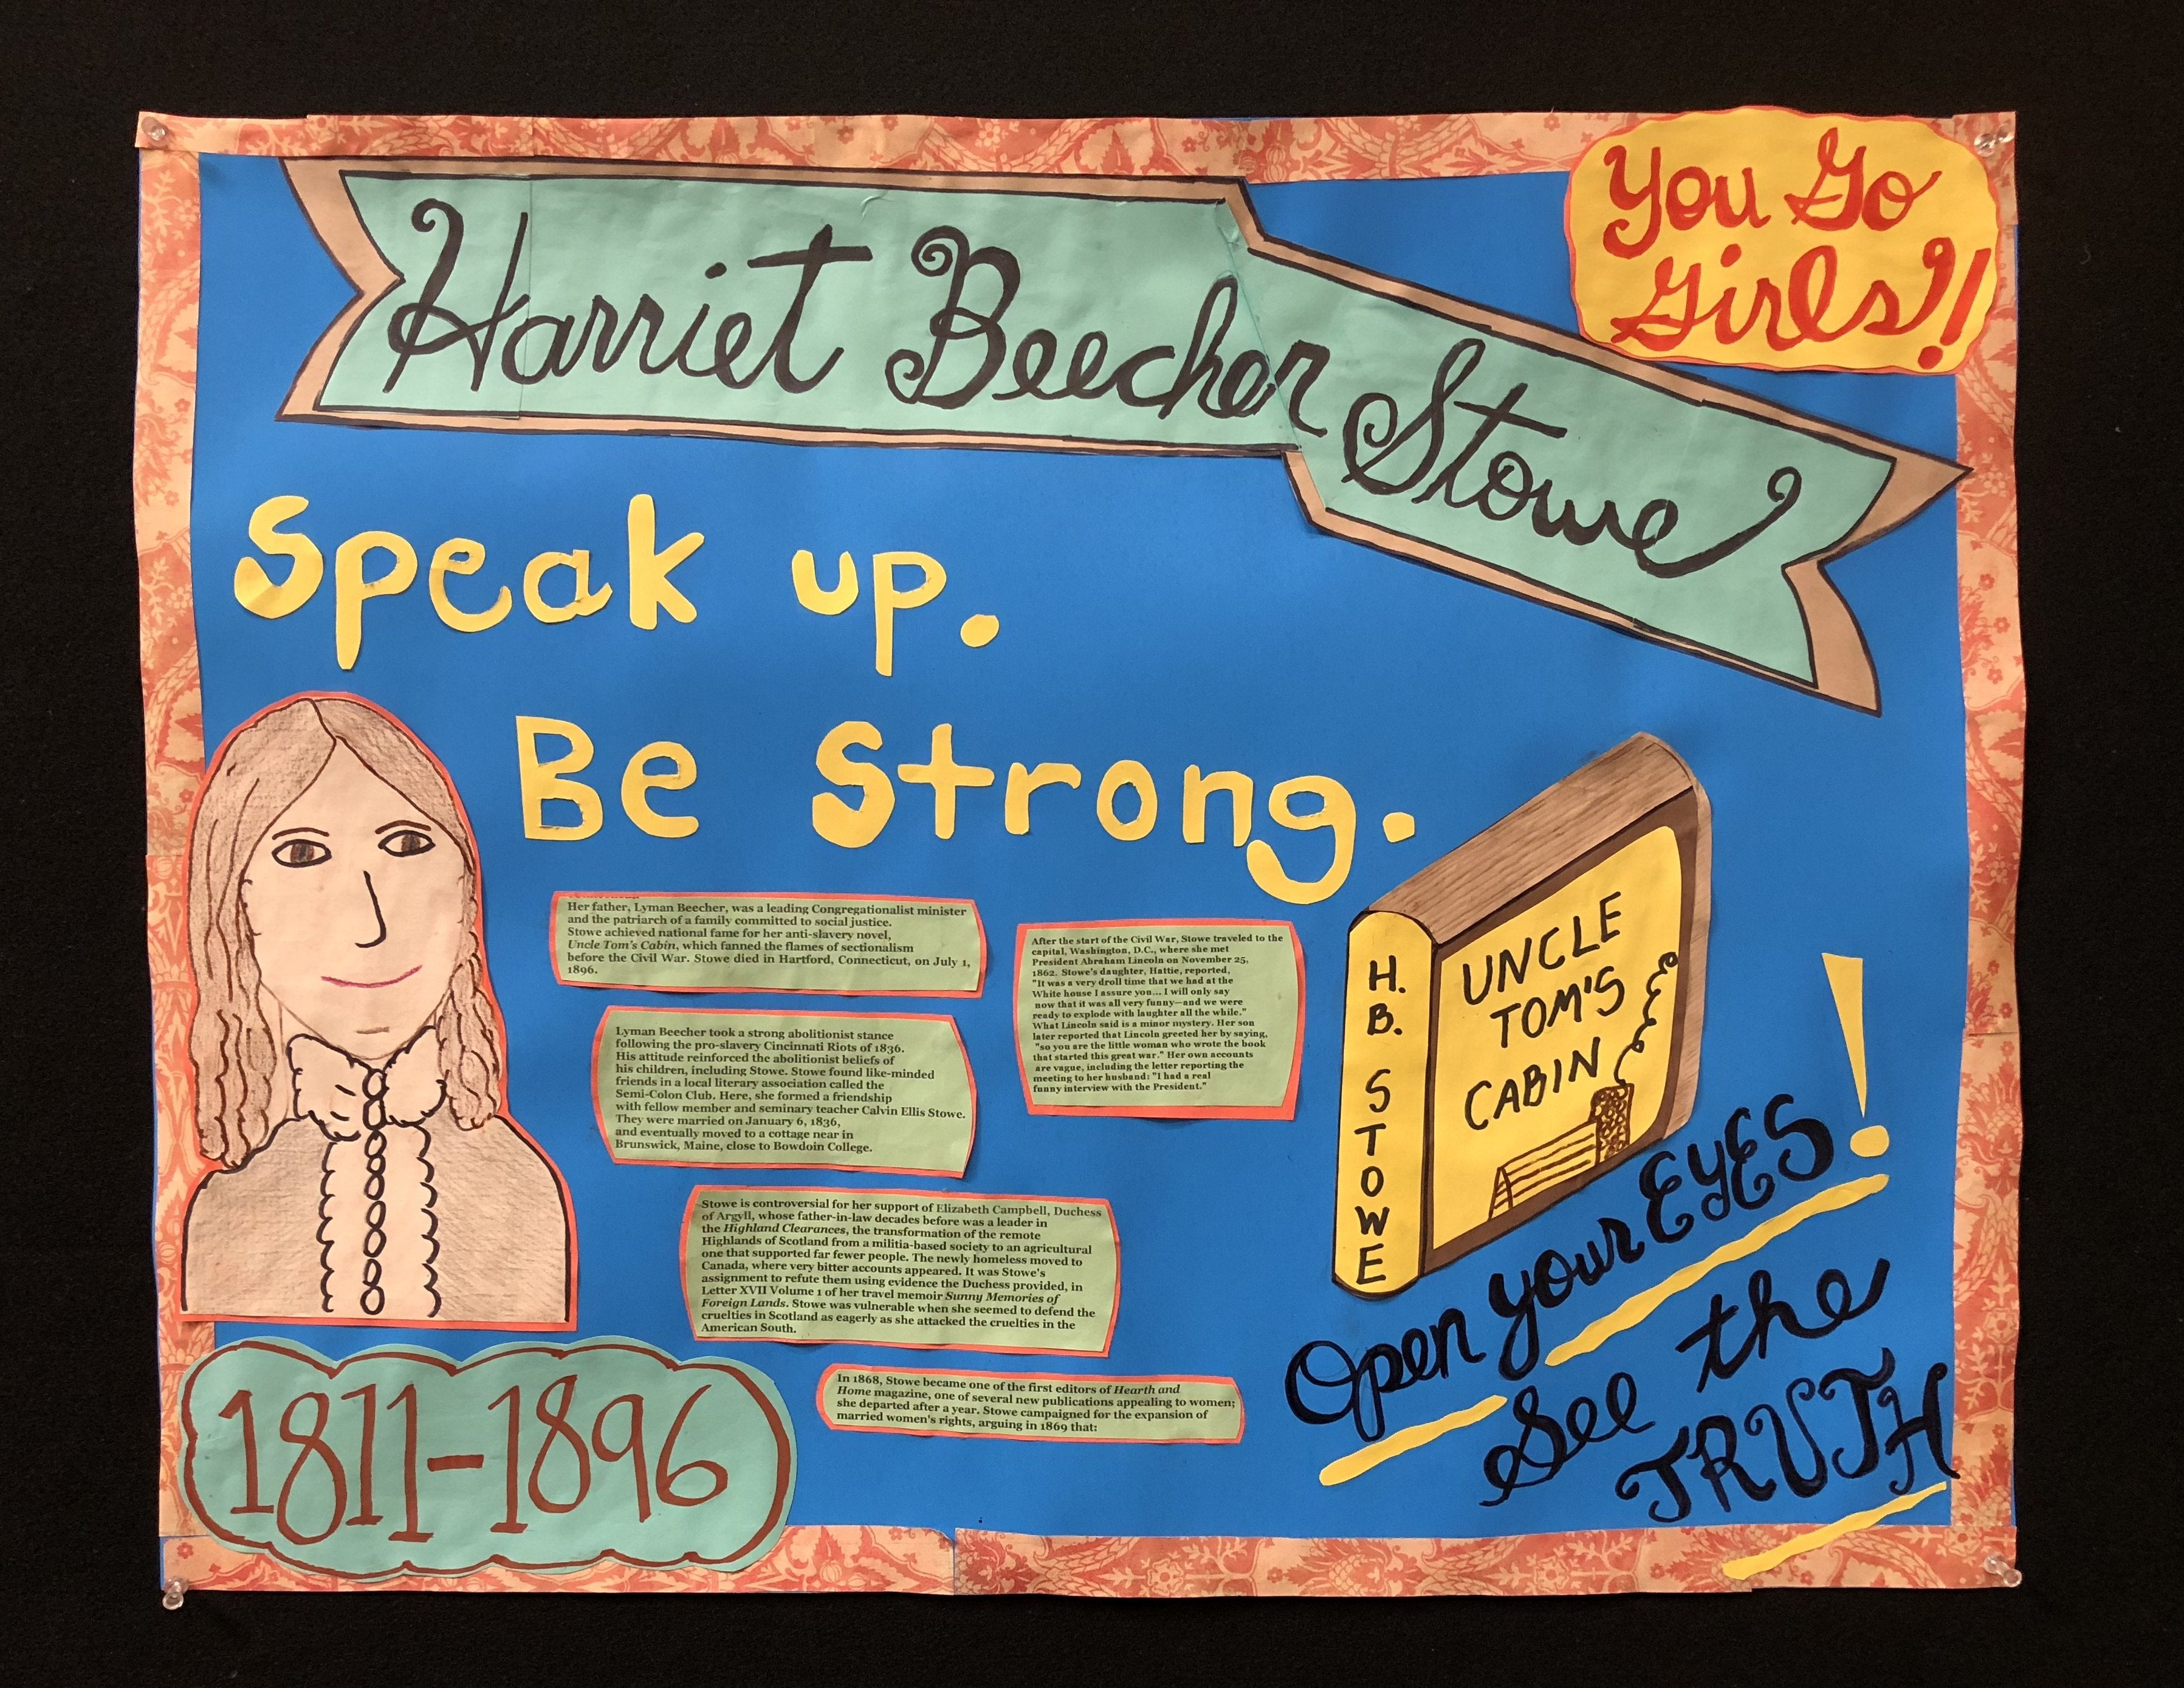 You Go
Girls!!
Harriet Beecher Stowe
Speak up.
Be Strong.
Her father, Lyman Beecher, was a leading Congregationalist minister
and the patriarch of a family committed to social justice.
Stowe achieved national fame for her anti-slavery novel,
Uncle Tom's Cabin, which fanned the flames of sectionalism
before the Civil War. Stowe died in Hartford, Connecticut, on July 1,
1896.
Lyman Beecher took a strong abolitionist stance
following the pro-slavery Cincinnati Riots of 1836.
His attitude reinforced the abolitionist beliefs of
his children, including Stowe. Stowe found like-minded
friends in a local literary association called the
Semi-Colon Club. Here, she formed a friendship
with fellow member and seminary teacher Calvin Ellis Stowe.
They were married on January 6, 1836,
and eventually moved to a cottage near in
Brunswick, Maine, close to Bowdoin College.
Stowe is controversial for her support of Elizabeth Campbell, Duchess
of Argyll, whose father-in-law decades before was a leader in
the Highland Clearances, the transformation of the remote
Highlands of Scotland from a militia-based society to an agricultural
one that supported far fewer people. The newly homeless moved to
Canada, where very bitter accounts appeared. It was Stowe's
assignment to refute them using evidence the Duchess provided, in
Letter XVII Volume 1 of her travel memoir Sunny Memories of
Foreign Lands. Stowe was vulnerable when she seemed to defend the
cruelties in Scotland as eagerly as she attacked the cruelties in the
American South.
In 1868, Stowe became one of the first editors of Hearth and
Home magazine, one of several new publications appealing to women;
she departed after a year. Stowe campaigned for the expansion of
married women's rights, arguing in 1869 that:
After the start of the Civil War, Stowe traveled to the
capital, Washington, D.C., where she met
President Abraham Lincoln on November 25,
1862. Stowe's daughter, Hattie, reported,
"It was a very droll time that we had at the
White house I assure you... I will only say
now that it was all very funny—and we were
ready to explode with laughter all the while."
What Lincoln said is a minor mystery. Her son
later reported that Lincoln greeted her by saying,
"so you are the little woman who wrote the book
that started this great war." Her own accounts
are vague, including the letter reporting the
meeting to her husband: "I had a real
funny interview with the President."
H. B. STOWE
UNCLE
TOM'S
CABIN
Open your EYES!
See the
TRUTH
1811-1896